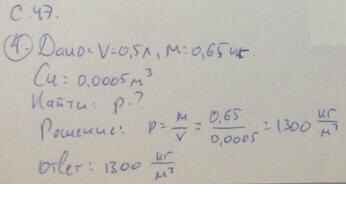 С. 47.
④. Дано: V=0,5л, м=0,65 кг.
Си: 0,0005 м³
Найти: p-?
Решение: p = м/V = 0,65/0,0005 = 1300 кг/м³
ответ: 1300 кг/м³